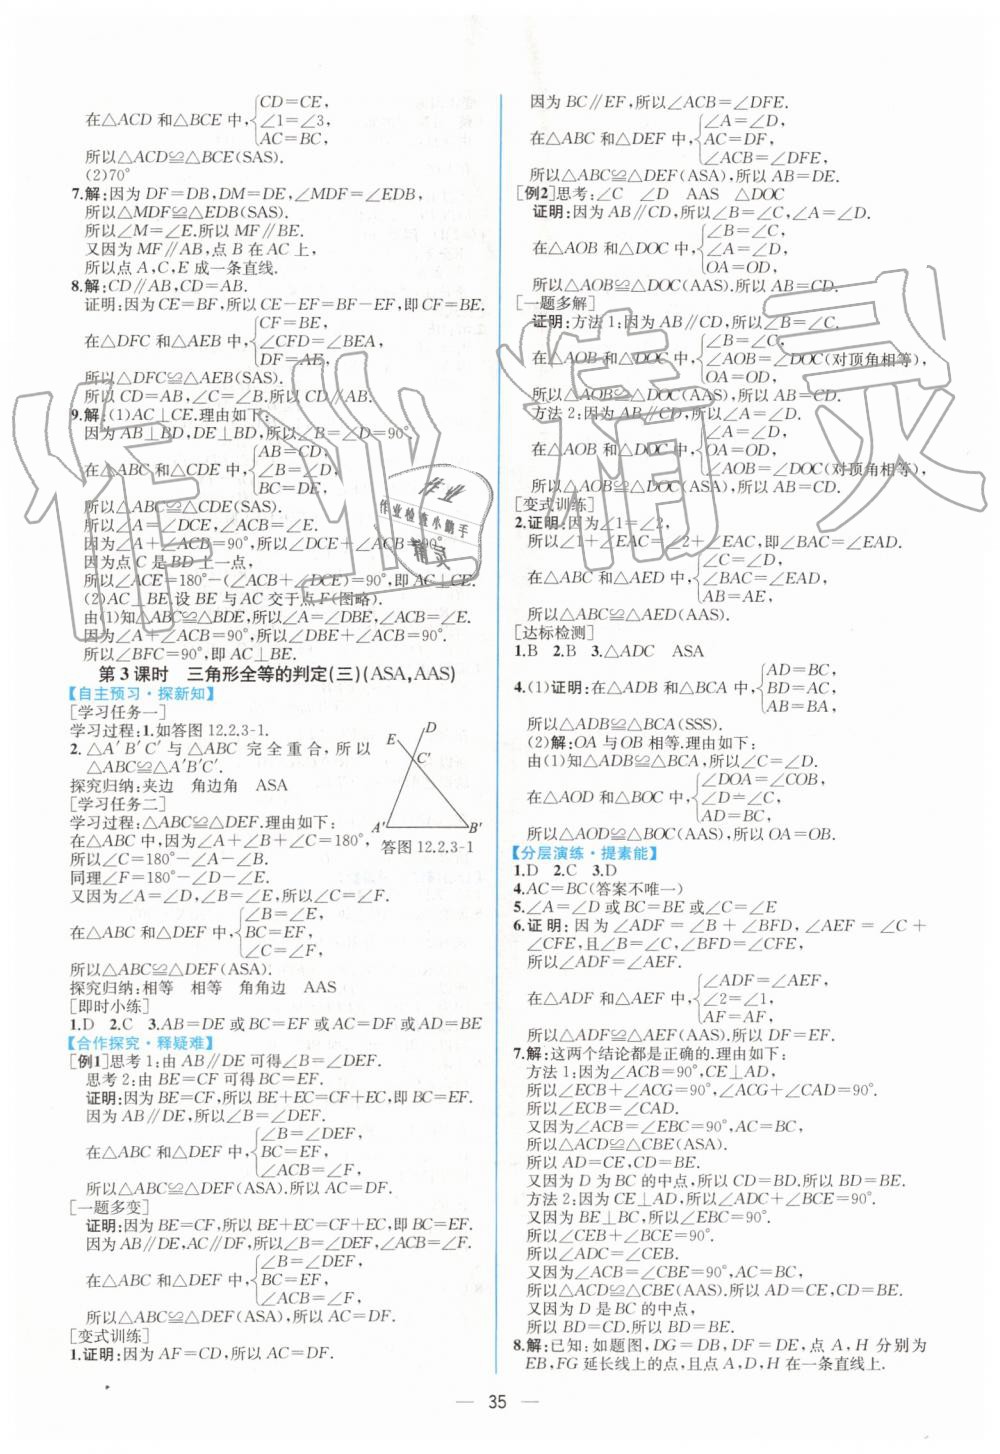 CD=CE,
在△ACD 和△BCE 中,{∠1=∠3,
AC=BC,
所以△ACD≌△BCE(SAS).
(2)70°
7.解:因为 DF=DB,DM=DE,∠MDF=∠EDB,
所以△MDF≌△EDB(SAS).
所以∠M=∠E.所以 MF∥BE.
又因为 MF∥AB,点 B 在 AC 上,
所以点 A,C,E 成一条直线.
8.解:CD∥AB,CD=AB.
证明:因为 CE=BF,所以 CE-EF=BF-EF,即 CF=BE.
CF=BE,
在△DFC 和△AEB 中,{∠CFD=∠BEA,
DF=AE,
所以△DFC≌△AEB(SAS).
所以 CD=AB,∠C=∠B.所以 CD∥AB.
9.解:(1)AC⊥CE.理由如下:
因为 AB⊥BD,DE⊥BD,所以∠B=∠D=90°.
AB=CD,
在△ABC 和△CDE 中,{∠B=∠D,
BC=DE,
所以△ABC≌△CDE(SAS).
所以∠A=∠DCE,∠ACB=∠E.
因为∠A+∠ACB=90°,所以∠DCE+∠ACB=90°.
因为点 C 是 BD 上一点,
所以∠ACE=180°-(∠ACB+∠DCE)=90°,即 AC⊥CE.
(2)AC⊥BE.设 BE 与 AC 交于点 F(图略).
由(1)知△ABC≌△BDE,所以∠A=∠DBE,∠ACB=∠E.
因为∠A+∠ACB=90°,所以∠DBE+∠ACB=90°.
所以∠BFC=90°,即 AC⊥BE.
第 3 课时 三角形全等的判定(三)(ASA,AAS)
【自主预习·探新知】
[学习任务一]
学习过程:1.如答图 12.2.3-1.
2.△A′B′C′与△ABC 完全重合,所以
△ABC≌△A′B′C′.
探究归纳:夹边 角边角 ASA
D
E
C′
A′
B′
答图 12.2.3-1
[学习任务二]
学习过程:△ABC≌△DEF.理由如下:
在△ABC 中,因为∠A+∠B+∠C=180°,
所以∠C=180°-∠A-∠B.
同理∠F=180°-∠D-∠E.
又因为∠A=∠D,∠B=∠E,所以∠C=∠F.
∠B=∠E,
在△ABC 和△DEF 中,{BC=EF,
∠C=∠F.
所以△ABC≌△DEF(ASA).
探究归纳:相等 相等 角角边 AAS
[即时小练]
1.D 2.C 3.AB=DE 或 BC=EF 或 AC=DF 或 AD=BE
【合作探究·释疑难】
[例1]思考 1:由 AB∥DE 可得∠B=∠DEF.
思考 2:由 BE=CF 可得 BC=EF.
证明:因为 BE=CF,所以 BE+EC=CF+EC,即 BC=EF.
因为 AB∥DE,所以∠B=∠DEF.
∠B=∠DEF,
在△ABC 和△DEF 中,{BC=EF,
∠ACB=∠F,
所以△ABC≌△DEF(ASA).所以 AC=DF.
[一题多变]
证明:因为 BE=CF,所以 BE+EC=CF+EC,即 BC=EF.
因为 AB∥DE,AC∥DF,所以∠B=∠DEF,∠ACB=∠F.
∠B=∠DEF,
在△ABC 和△DEF 中,{BC=EF,
∠ACB=∠F,
所以△ABC≌△DEF(ASA),所以 AC=DF.
[变式训练]
1.证明:因为 AF=CD,所以 AC=DF.
因为 BC∥EF,所以∠ACB=∠DFE.
∠A=∠D,
在△ABC 和△DEF 中,{AC=DF,
∠ACB=∠DFE,
所以△ABC≌△DEF(ASA),所以 AB=DE.
[例2]思考:∠C ∠D AAS △DOC
证明:因为 AB∥CD,所以∠B=∠C,∠A=∠D.
∠B=∠C,
在△AOB 和△DOC 中,{∠A=∠D,
OA=OD,
所以△AOB≌△DOC(AAS).所以 AB=CD.
[一题多解]
证明:方法 1:因为 AB∥CD,所以∠B=∠C.
∠B=∠C,
在△AOB 和△DOC 中,{∠AOB=∠DOC(对顶角相等),
OA=OD,
所以△AOB≌△DOC(AAS),所以 AB=CD.
方法 2:因为 AB∥CD,所以∠A=∠D.
∠A=∠D,
在△AOB 和△DOC 中,{OA=OD,
∠AOB=∠DOC(对顶角相等),
所以△AOB≌△DOC(ASA),所以 AB=CD.
[变式训练]
2.证明:因为∠1=∠2,
所以∠1+∠EAC=∠2+∠EAC,即∠BAC=∠EAD.
∠C=∠D,
在△ABC 和△AED 中,{∠BAC=∠EAD,
AB=AE,
所以△ABC≌△AED(AAS).
[达标检测]
1.B 2.B 3.△ADC ASA
AD=BC,
4.(1)证明:在△ADB 和△BCA 中,{BD=AC,
AB=BA,
所以△ADB≌△BCA(SSS).
(2)解:OA 与 OB 相等.理由如下:
由(1)知△ADB≌△BCA,所以∠C=∠D.
∠DOA=∠COB,
在△AOD 和△BOC 中,{∠D=∠C,
AD=BC,
所以△AOD≌△BOC(AAS),所以 OA=OB.
【分层演练·提素能】
1.D 2.C 3.D
4.AC=BC(答案不唯一)
5.∠A=∠D 或 BC=BE 或∠C=∠E
6.证明:因为∠ADF=∠B+∠BFD,∠AEF=∠C+
∠CFE,且∠B=∠C,∠BFD=∠CFE,
所以∠ADF=∠AEF.
∠ADF=∠AEF,
在△ADF 和△AEF 中,{∠2=∠1,
AF=AF,
所以△ADF≌△AEF(AAS).所以 DF=EF.
7.解:这两个结论都是正确的.理由如下:
方法 1:因为∠ACB=90°,CE⊥AD,
所以∠ECB+∠ACG=90°,∠ACG+∠CAD=90°.
所以∠ECB=∠CAD.
又因为∠ACB=∠EBC=90°,AC=BC,
所以△ACD≌△CBE(ASA).
所以 AD=CE,CD=BE.
又因为 D 为 BC 的中点,所以 CD=BD.所以 BD=BE.
方法 2:因为 CE⊥AD,所以∠ADC+∠BCE=90°.
又因为 BE⊥BC,所以∠EBC=90°.
所以∠CEB+∠BCE=90°.
所以∠ADC=∠CEB.
又因为∠ACB=∠CBE=90°,AC=BC,
所以△ACD≌△CBE(AAS).所以 AD=CE,CD=BE.
又因为 D 是 BC 的中点,
所以 BD=CD.所以 BD=BE.
8.解:已知:如题图,DG=DB,DF=DE,点 A,H 分别为
EB,FG 延长线上的点,且点 A,D,H 在一条直线上.
— 35 —
作业精灵
作业
作业检查小助手
精灵